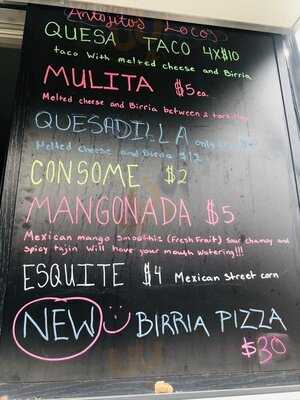 Antojitos Locos
QUESA TACO 4x$10
taco with melted cheese and Birria
MULITA $5 ea.
Melted cheese and Birria between 2 tortillas
QUESADILLA only
Melted cheese and Birria $12
CONSOME $2
MANGONADA $5
Mexican mango smoothie (Fresh Fruit) sour chamoy and
spicy tajin Will have your mough watering!!!
ESQUITE $4 Mexican Street corn
NEW BIRRIA PIZZA
$30